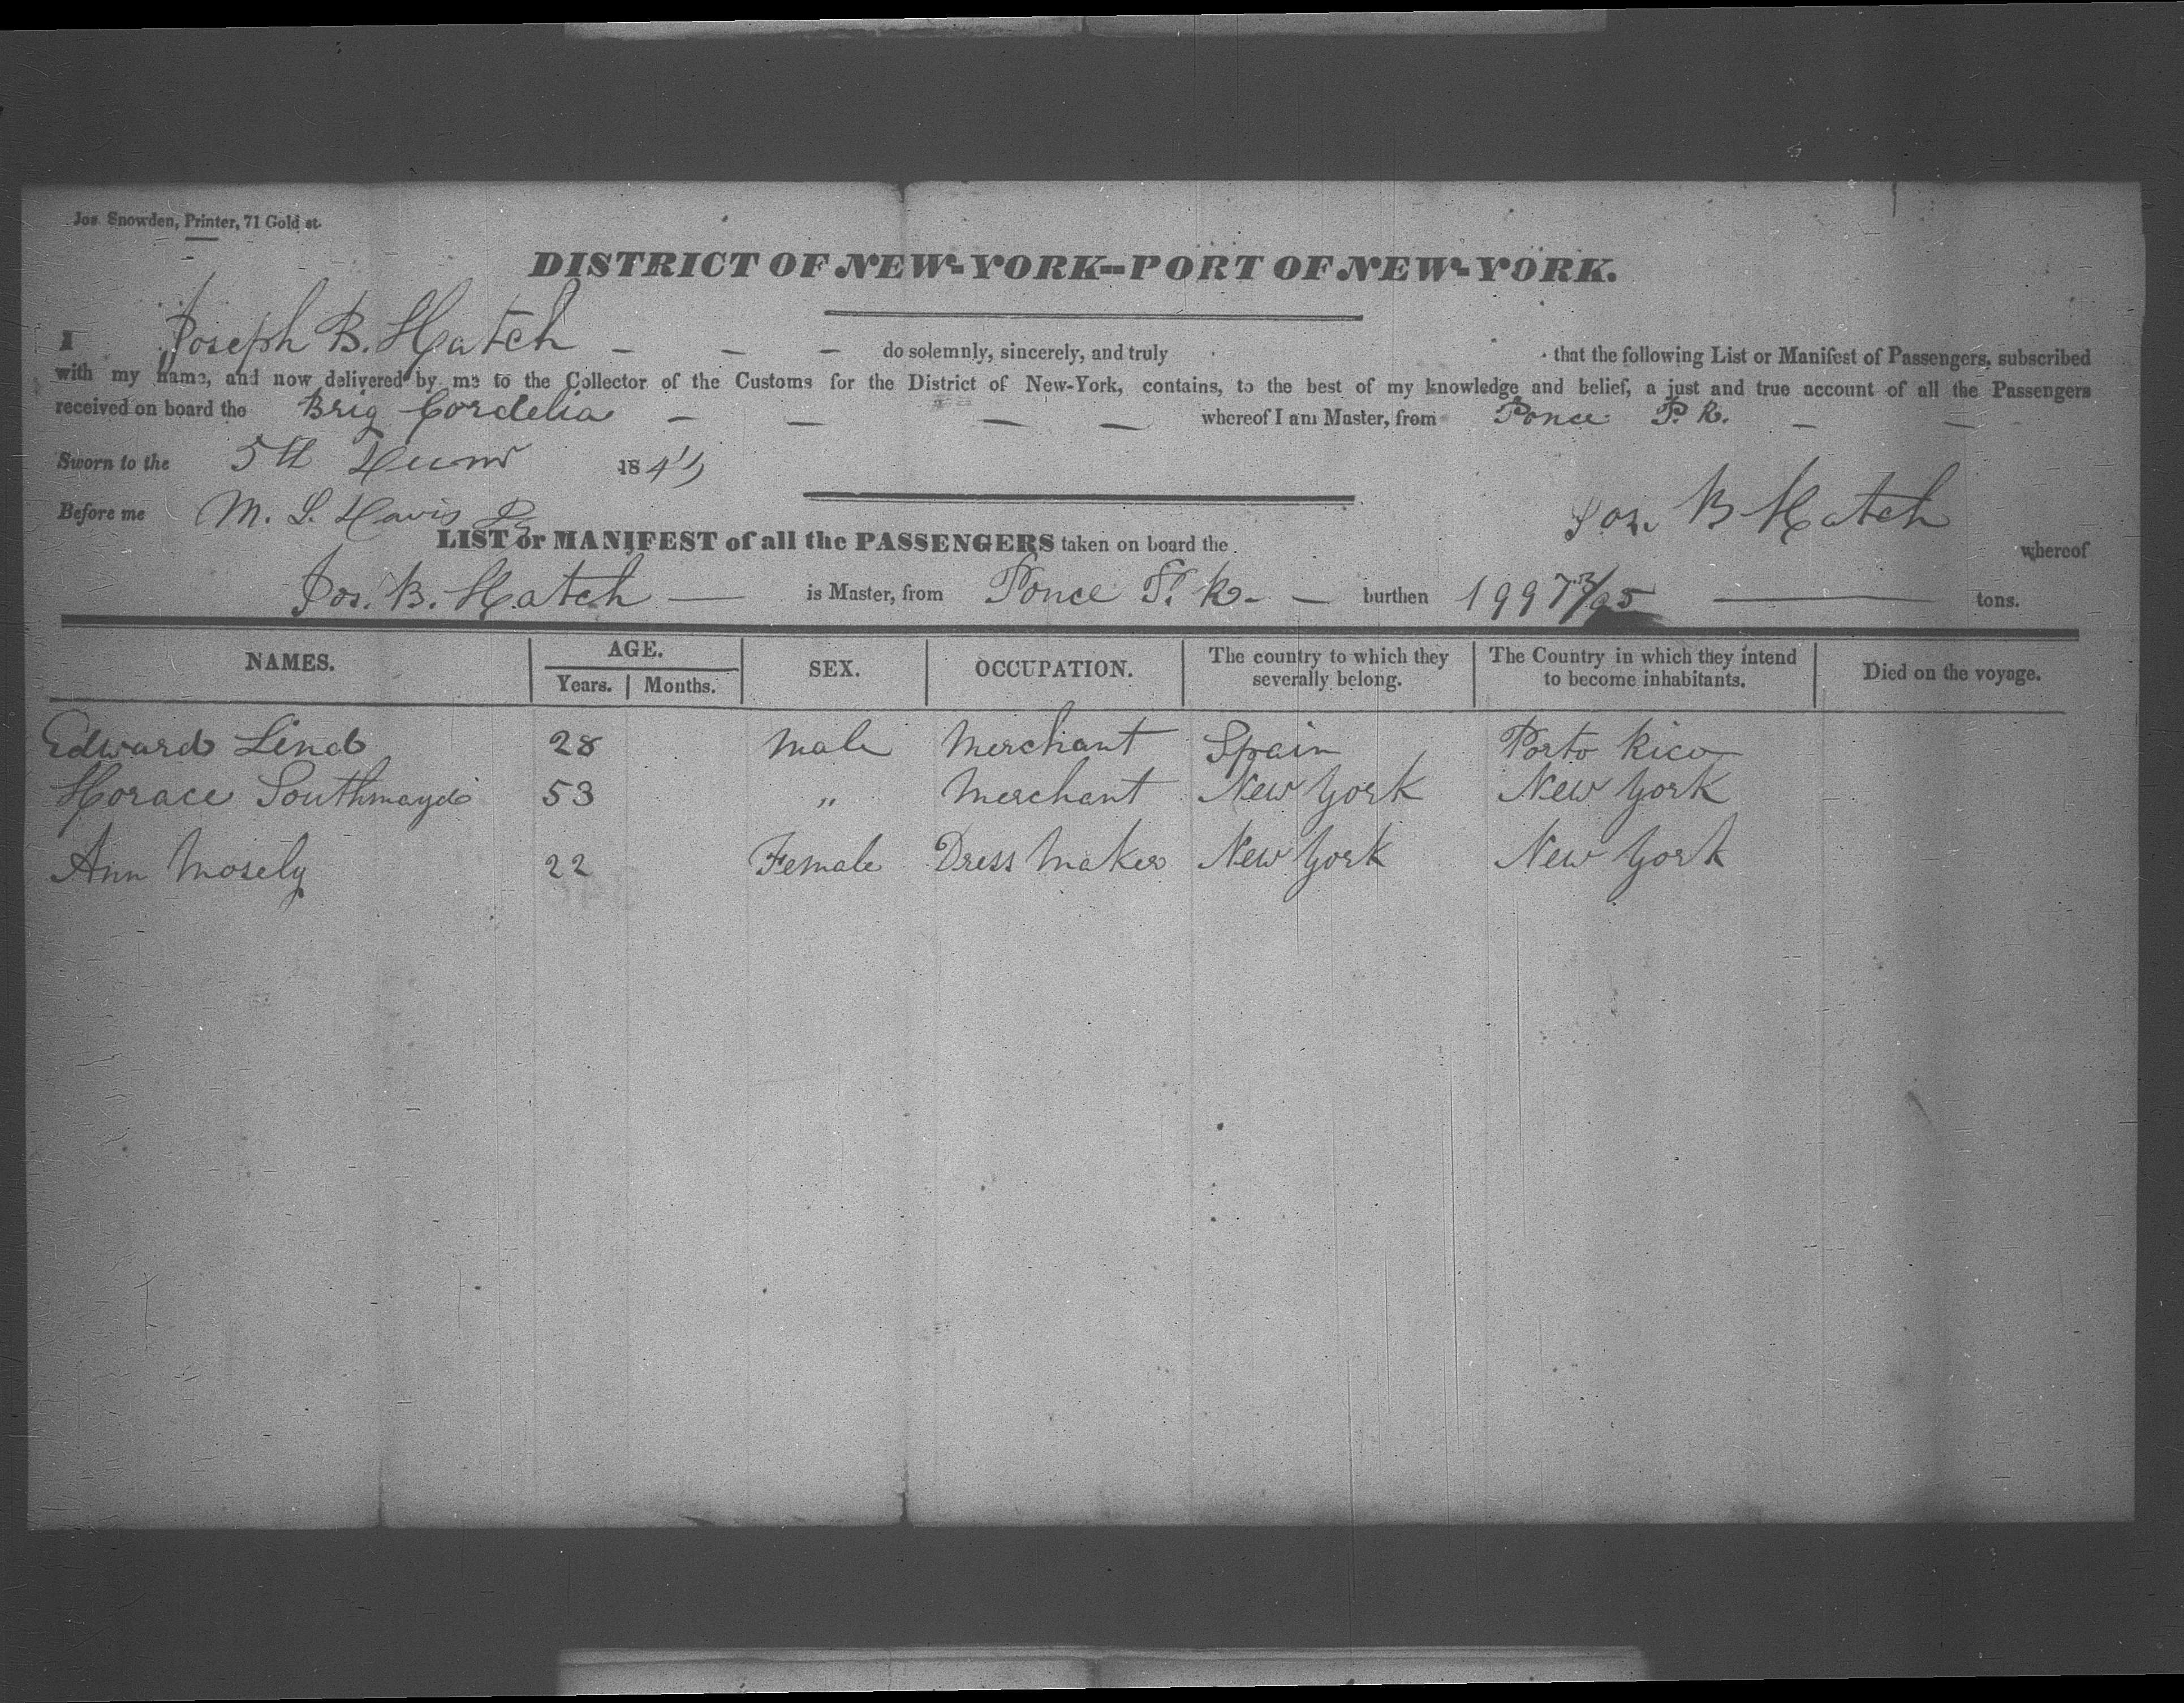 Jos Snowden, Printer, 71 Gold st.
DISTRICT OF NEW-YORK--PORT OF NEW-YORK.
I Joseph B. Hatch — — — do solemnly, sincerely, and truly that the following List or Manifest of Passengers, subscribed
with my name, and now delivered by me to the Collector of the Customs for the District of New-York, contains, to the best of my knowledge and belief, a just and true account of all the Passengers
received on board the Brig Cordelia — — — — whereof I am Master, from Ponce P. R. — —
Sworn to the 5th 184
Before me M. L. Davis
Jos. B Hatch
LIST or MANIFEST of all the PASSENGERS taken on board the whereof
Jos. B. Hatch — is Master, from Ponce P. R. — — burthen 199 73/95 — tons.
NAMES. AGE. SEX. OCCUPATION. The country to which they severally belong. The Country in which they intend to become inhabitants. Died on the voyage.
Years. Months.
Edward Lind 28 Male Merchant Spain Porto Rico
Horace Southmayd 53 " Merchant New York New York
Ann Mosely 22 Female Dress Maker New York New York